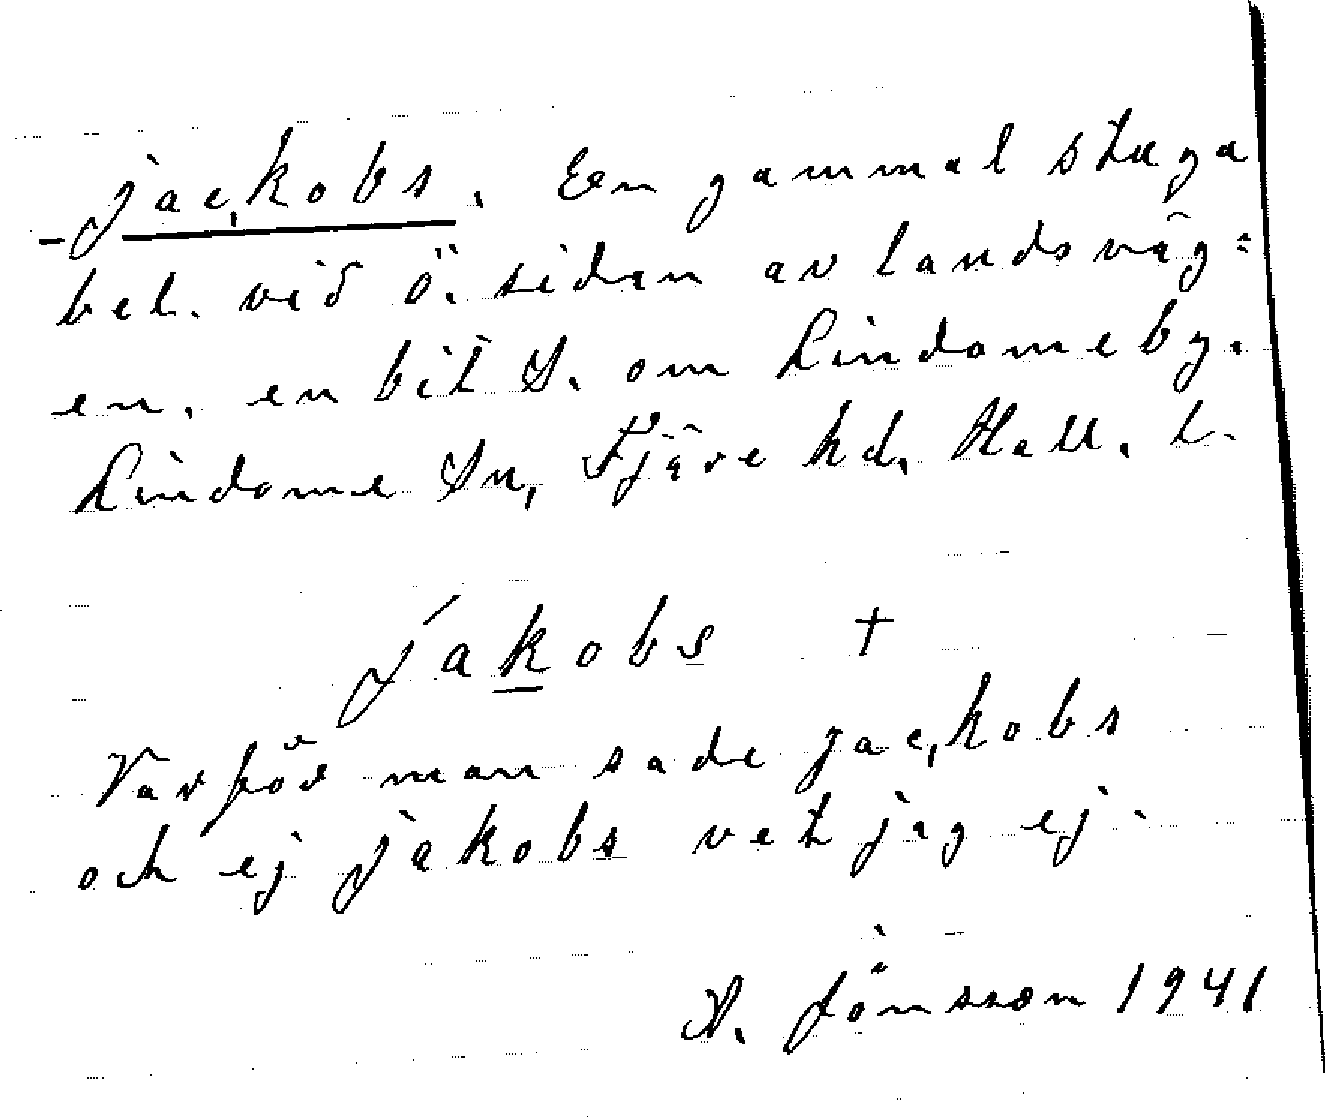 - jac,kobs. En gammal stuga
bel. vid ö. sidan av landsväg=
en, en bit S. om Lindomeby.
Lindome Sn, Fjäre hd, Hall. l.
jakobs +
Varför man sade jac,kobs
och ej jakobs vet jag ej.
A. Jönsson 1941